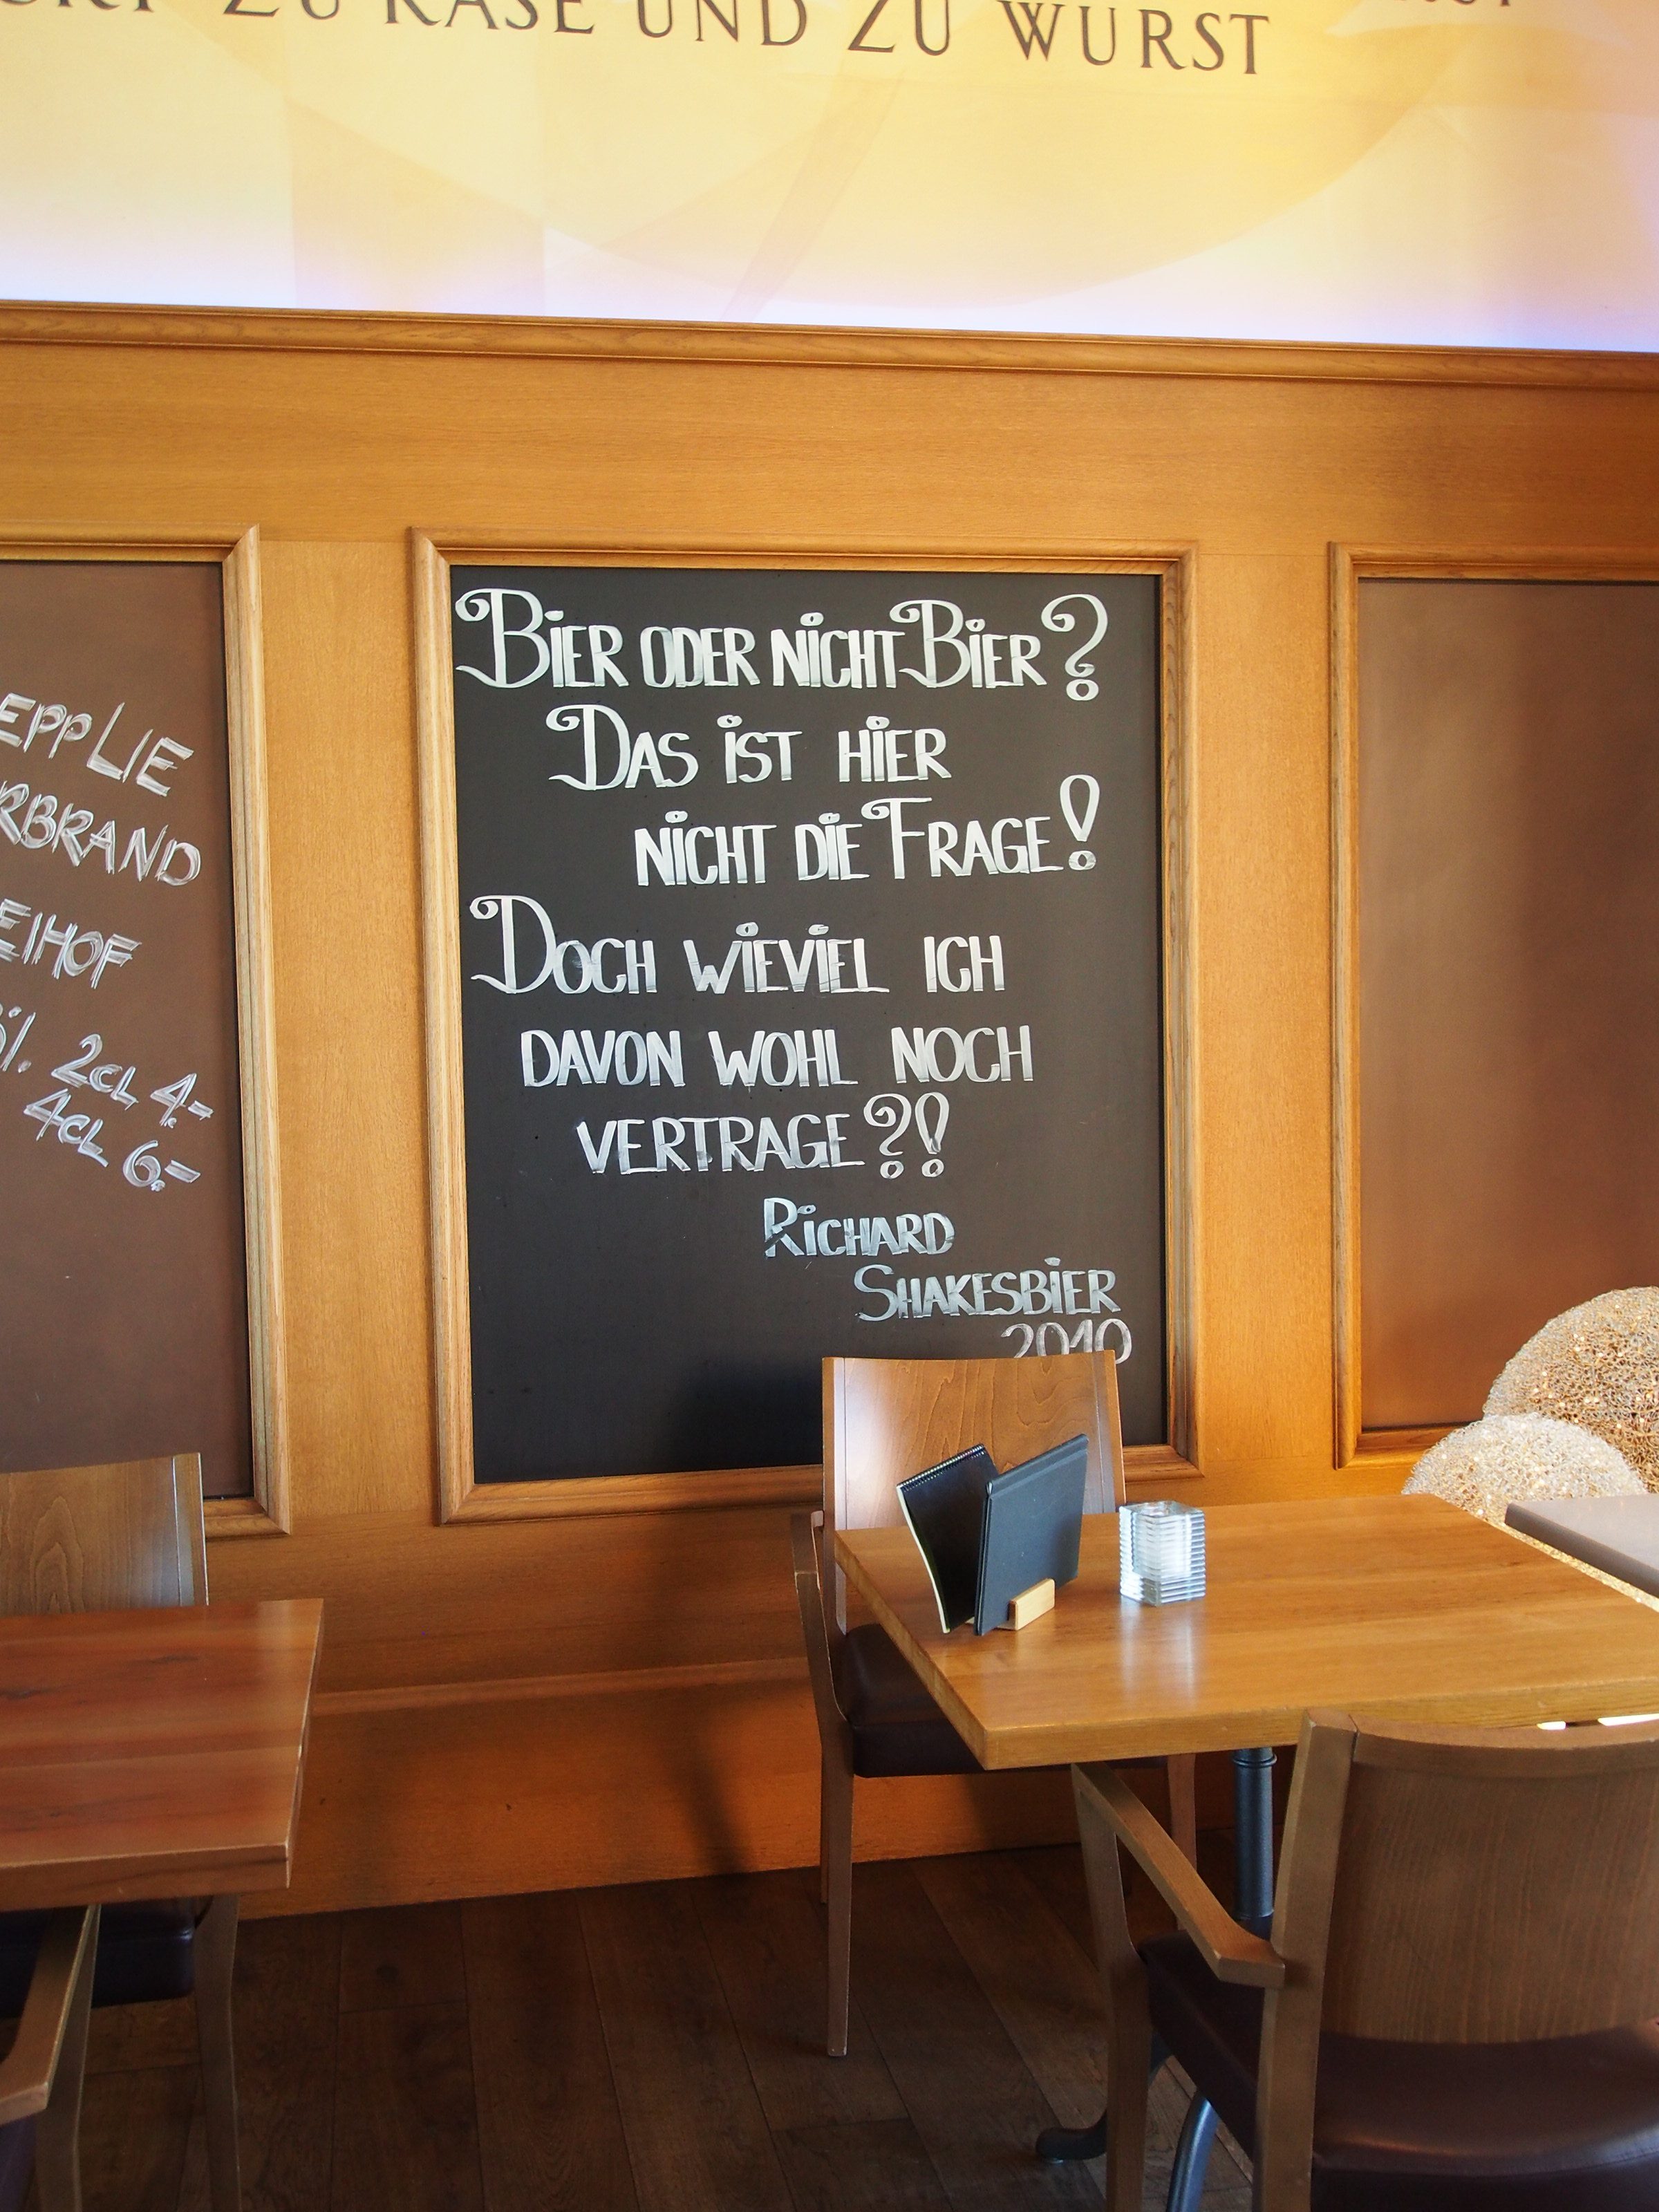 ZU KÄSE UND ZU WURST
BIER ODER NICHT BIER?
DAS IST HIER
NICHT DIE FRAGE!
DOCH WIEVIEL ICH
DAVON WOHL NOCH
VERTRAGE?!
RICHARD
SHAKESBIER
2010
EPPLIE
RBRAND
EIHOF
2CL 4.-
4CL 6.-